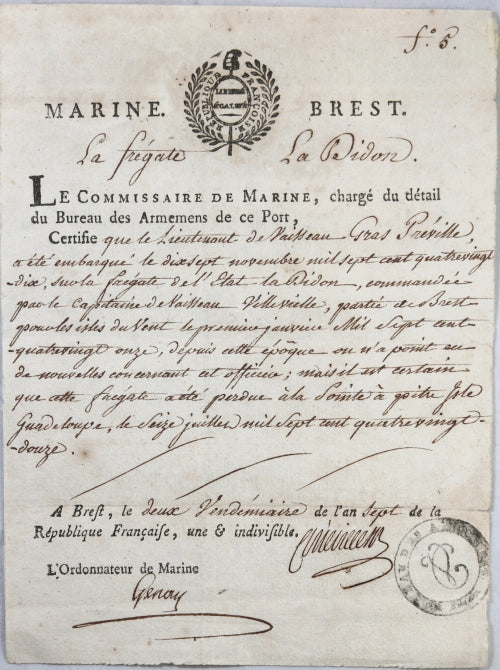 fo. 5.
RÉPUBLIQUE FRANÇOISE
LIBERTÉ
ÉGALITÉ
MARINE. BREST.
La frégate La Didon.
LE COMMISSAIRE DE MARINE, chargé du détail
du Bureau des Armemens de ce Port,
Certifie que le Lieutenant de Vaisseau Gras Préville,
a été embarqué le dix sept novembre mil sept cent quatrevingt
dix, sur la frégate de l'Etat la Didon, commandée
par le Capitaine de Vaisseau Villevielle, partie de Brest
pour les isles du Vent le premier janvier Mil Sept cent-
-quatrevingt onze, depuis cette époque on n'a point eu
de nouvelles concernant cet officier; mais il est certain
que cette frégate a été perdue à la Pointe à pitre Isle
Guadeloupe, le Seize juillet mil Sept cent quatrevingt-
-douze.
A Brest, le deux Vendémiaire de l'an Sept de la
République Française, une & indivisible.
L'Ordonnateur de Marine